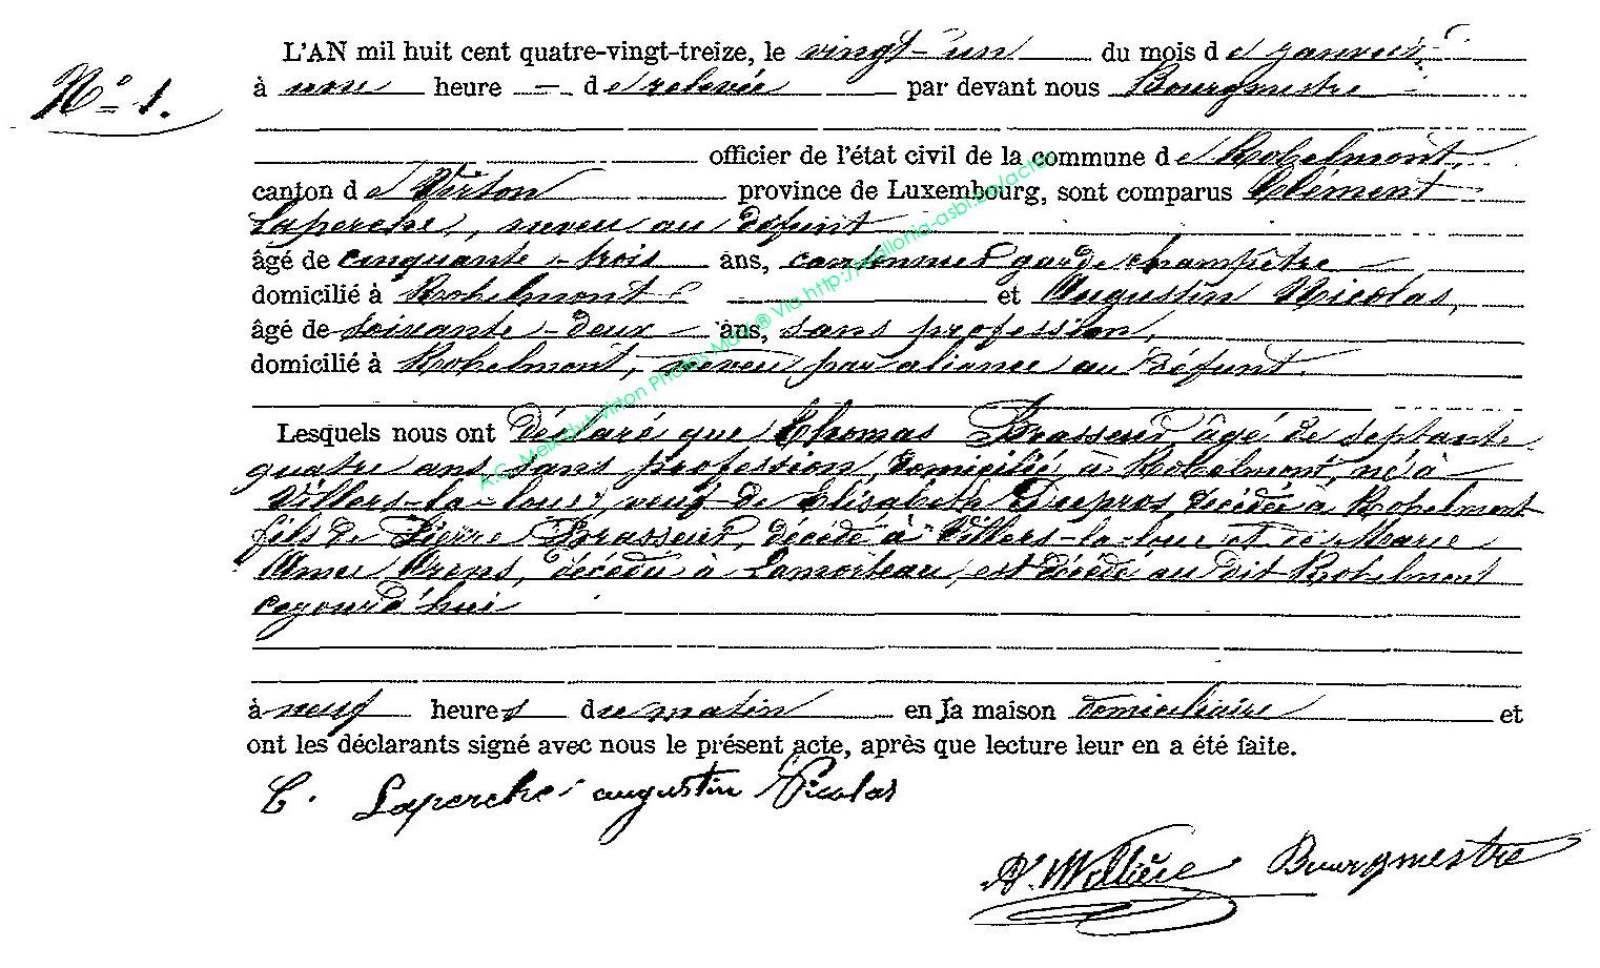 L'AN mil huit cent quatre-vingt-treize, le vingt-un du mois de Janvier,
N° 1.
à une heure de relevée par devant nous Bourgmestre
officier de l'état civil de la commune de Robelmont,
canton de Virton province de Luxembourg, sont comparus Clément
Laperche, neveu au défunt
âgé de cinquante-trois ans, cantonnier garde champêtre
domicilié à Robelmont et Augustin Nicolas,
âgé de soixante-deux ans, sans profession,
domicilié à Robelmont, neveu par aliance au défunt.
Lesquels nous ont déclaré que Thomas Brasseur, âgé de septante
quatre ans, sans profession, domicilié à Robelmont, né à
Villers-la-loue, veuf de Elisabeth décédée à Robelmont
fils de Pierre Brasseur, décédé à Villers-la-loue et de Marie
Anne décédée à Lamorteau, est décédé au dit Robelmont
cejourd'hui
à neuf heures du matin en la maison domiciliaire et
ont les déclarants signé avec nous le présent acte, après que lecture leur en a été faite.
C. Laperche augustin Nicolas
Bourgmestre
A.G. Meix dvt Virton Photos Math ® Via http://wallonia-asbl.be/actes